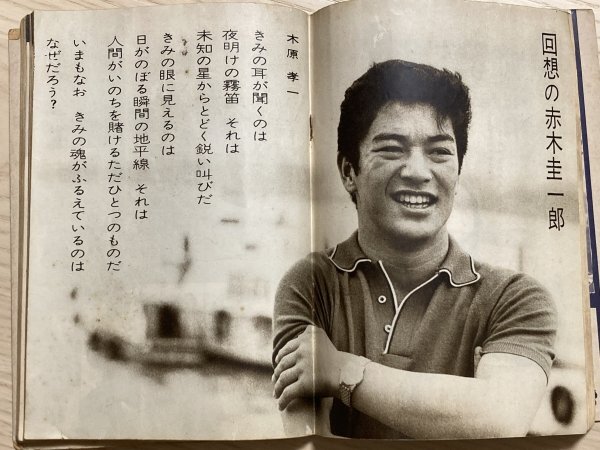 回想の赤木圭一郎
木原孝一
きみの耳が聞くのは
夜明けの霧笛　それは
未知の星からとどく鋭い叫びだ
きみの眼に見えるのは
日がのぼる瞬間の地平線　それは
人間がいのちを賭けるただひとつのものだ
いまもなお　きみの魂がふるえているのは
なぜだろう？